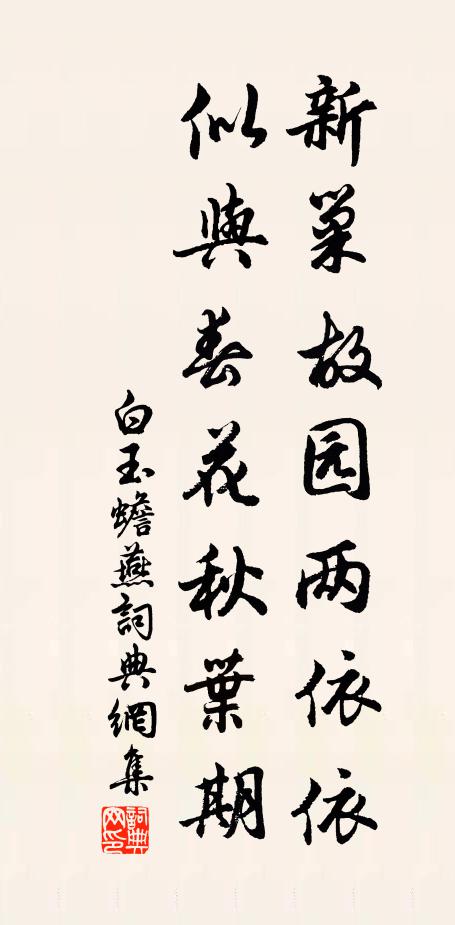 新巢故园两依依
似與春花秋葉期
白玉蟾燕詞典網集
詞典网印